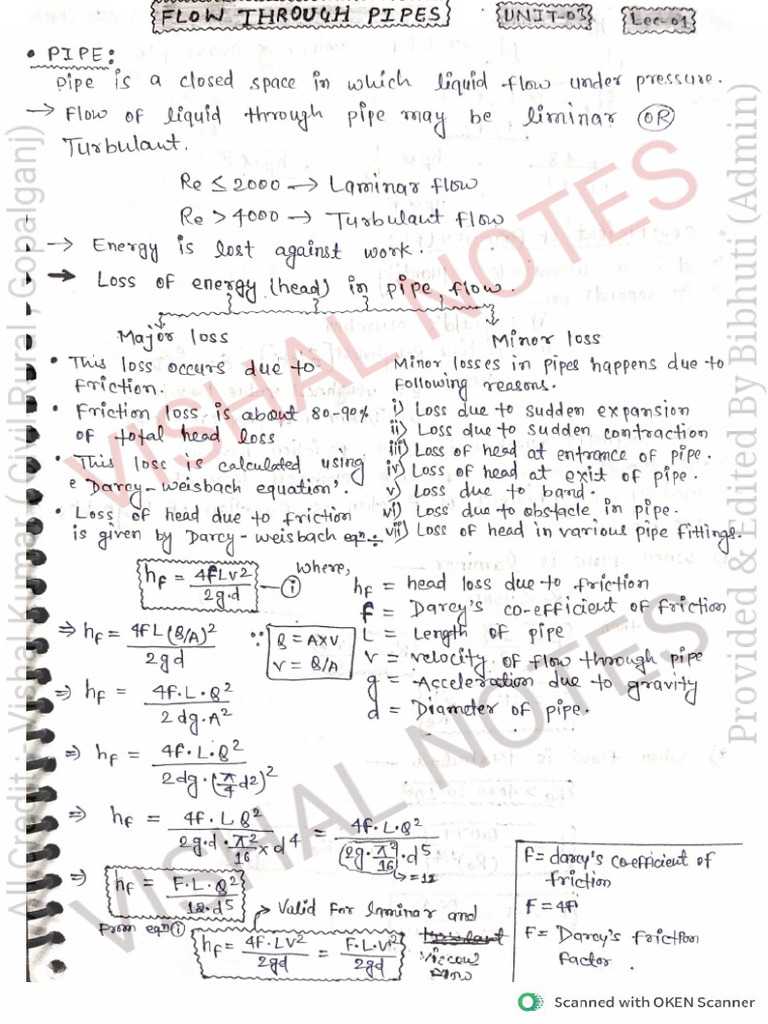 FLOW THROUGH PIPES UNIT-03 Lec-01
• PIPE:
Pipe is a closed space in which liquid flow under pressure.
→ Flow of liquid through pipe may be liminar OR
Turbulant.
Re ≤ 2000 → Laminar flow
Re > 4000 → Turbulant flow
→ Energy is lost against work.
→ Loss of energy (head) in pipe flow.
Major loss
• This loss occurs due to
friction.
• Friction loss is about 80-90%
of total head loss
• This loss is calculated using
e Darcy-Weisbach equation'.
• Loss of head due to friction
is given by Darcy-weisbach eqn:-
Minor loss
Minor losses in pipes happens due to
following reasons.
i) Loss due to sudden expansion
ii) Loss due to sudden contraction
iii) Loss of head at entrance of pipe.
iv) Loss of head at exit of pipe.
v) Loss due to band.
vi) Loss due to obstacle in pipe.
vii) Loss of head in various pipe fittings.
hf = 4fLv2/2g.d — i
where,
hf = head loss due to friction
f = Darcy's co-efficient of friction
L = Length of pipe
v = velocity of flow through pipe
g = Acceleration due to gravity
d = Diameter of pipe.
⇒ hf = 4fL(Q/A)2/2gd ∵ Q = A×V
V = Q/A
⇒ hf = 4f.L.Q2/2dg.A2
⇒ hf = 4f.L.Q2/2dg.(π/4 d2)2
⇒ hf = 4f.LQ2/2g.d.π2/16 × d4 = 4f.L.Q2/(2g.π2/16).d5
→ = 12
⇒ hf = F.L.Q2/12.d5
→ Valid for laminar and
From eqn i
hf = 4f.LV2/2gd = F.L.V2/2gd
f = darcy's coefficient of
friction
F = 4f
F = Darcy's friction
factor.
VISHAL NOTES
VISHAL NOTES
All Credit :- Vishal Kumar (Civil Rural, Gopalganj)
Provided & Edited By Bibhuti (Admin)
Scanned with OKEN Scanner